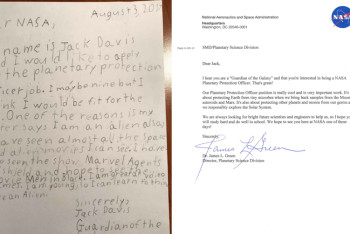 August 3, 201
ear NASA,
name is Jack Davis
I would like to apply
the planetary protection
icer job. I may be nine but I
ink I would be fit for the
. One of the reasons is my
ter says I am an alien also
ave seen almost all the space
d alien movies I can see. I have
o seen the show Marvel Agents
Shield and hope to
ovie Men in Black. I am great at
mes. I am young, so I can learn to think
an Alien.
Sincerely,
Jack Davis
Guardian of the
National Aeronautics and Space Administration
Headquarters
Washington, DC 20546-0001
NASA
SMD/Planetary Science Division
Dear Jack,
I hear you are a "Guardian of the Galaxy" and that you're interested in being a NASA
Planetary Protection Officer. That's great!
Our Planetary Protection Officer position is really cool and is very important work. It's
about protecting Earth from tiny microbes when we bring back samples from the Moon,
asteroids and Mars. It's also about protecting other planets and moons from our germs as
we responsibly explore the Solar System.
We are always looking for bright future scientists and engineers to help us, so I hope you
will study hard and do well in school. We hope to see you here at NASA one of these
days!
Sincerely,
James L Green
Dr. James L. Green
Director, Planetary Science Division